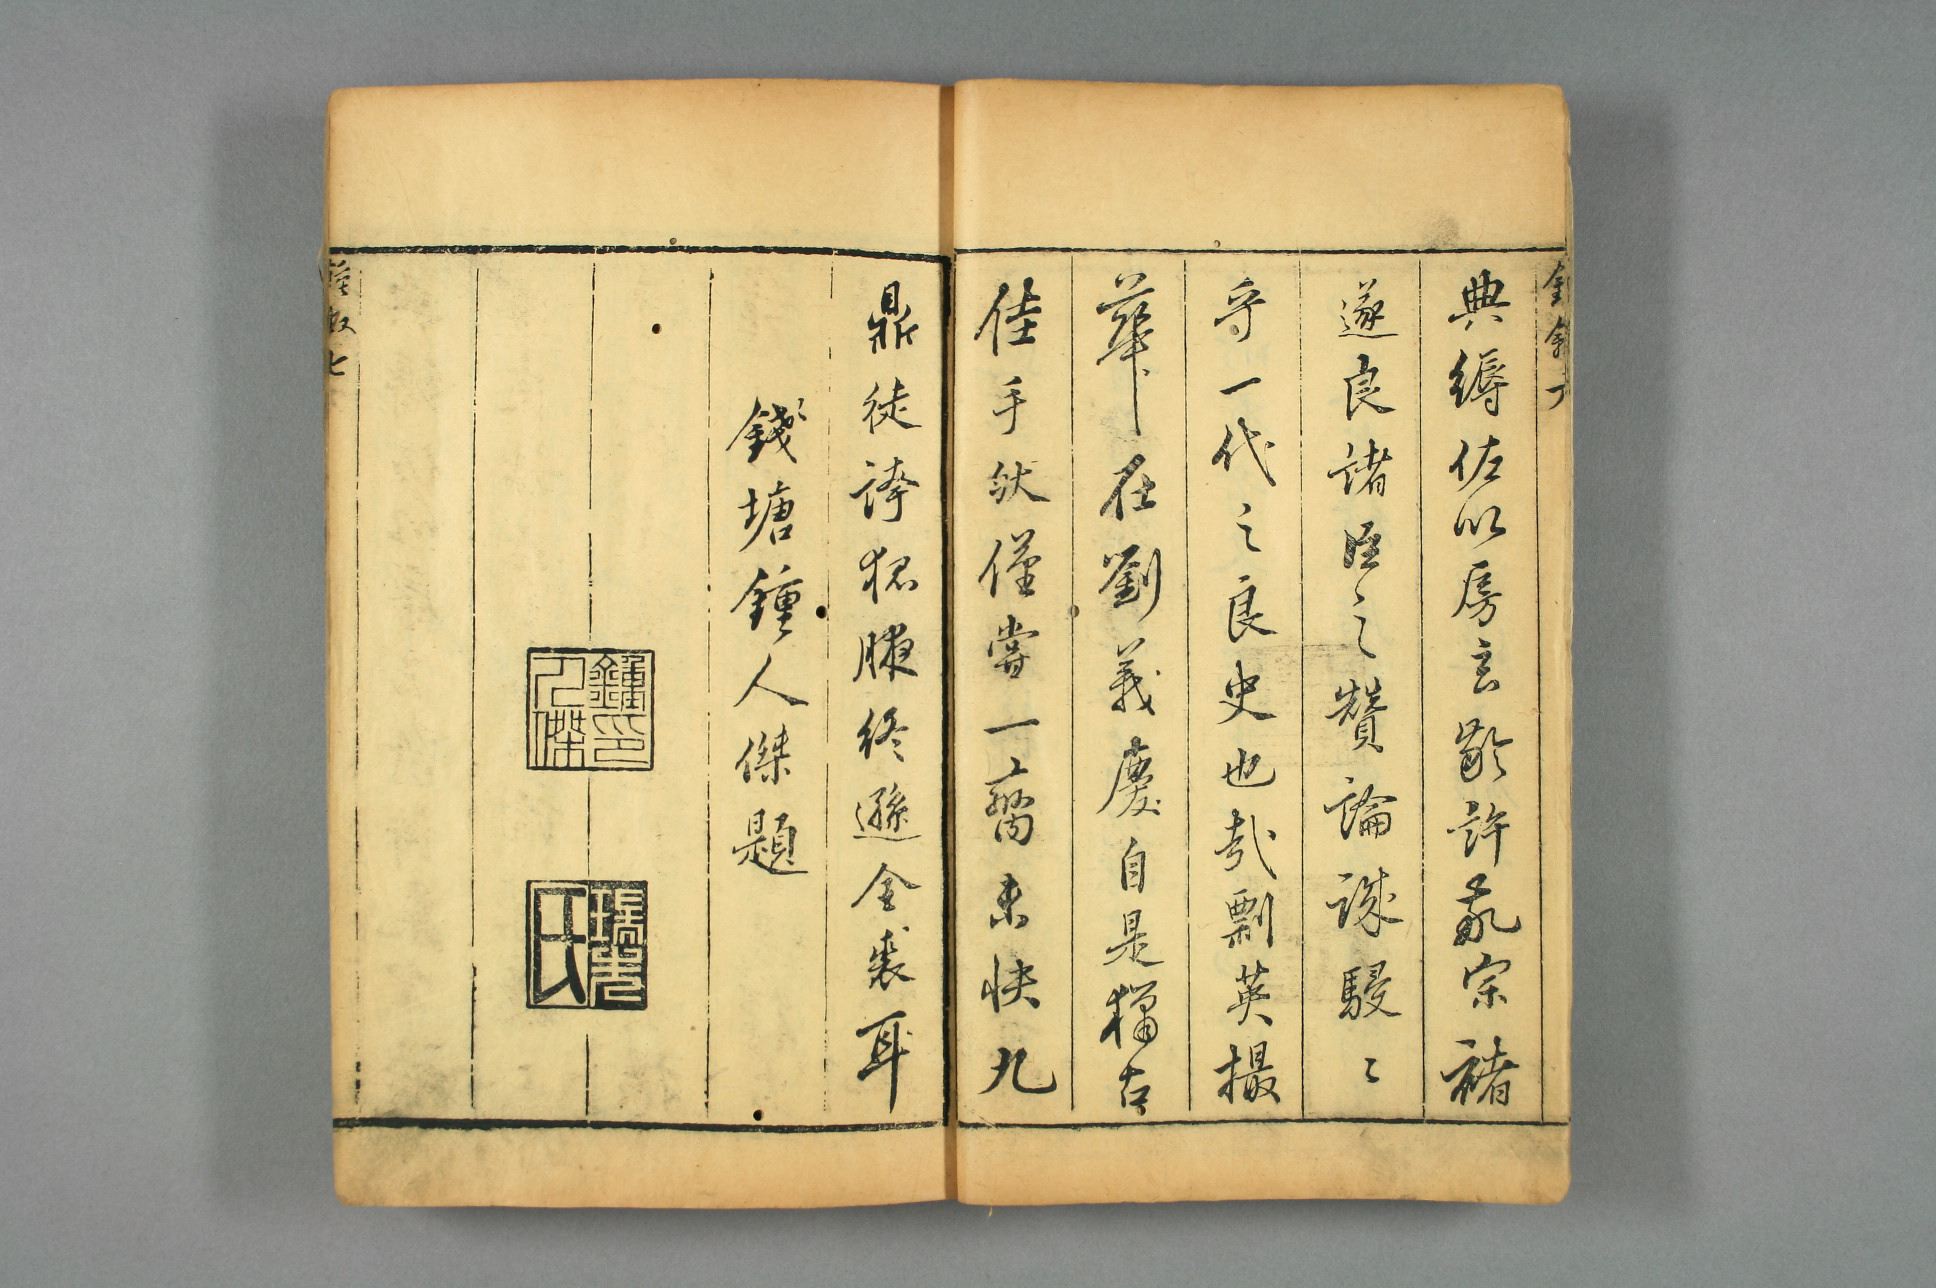 典縟佐以房玄齡許敬宗褚
遂良諸臣之贊論誠駸〻
乎一代之良史也哉剽英撮
華在劉義慶自是獵古
佳手然僅嘗一臠未快九
鼎徒誇狐腋終遜全裘耳
錢塘鍾人傑題
鍾印人傑
瑞先氏